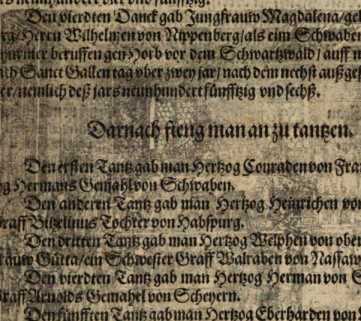 Den vierdten Danck gab Jungfrauw Magdalena/ge
rg/ Herrn Wilhelmen von Rippenberg/ als eim Schwaben
beruffen gen Horb vor dem Schwartzwald/ auff
Sanct Gallen tag vber zwey jar/ nach dem nechst außge
er/ nemlich deß jars neunhundert fünfftzig vnd sechß.
Darnach fieng man an zu tantzen.
Den ersten Tantz gab man Hertzog Conraden von Fra
og Hermans Gemahl von Schwaben.
Den anderen Tantz gab man Hertzog Heinrichen von
Graff Tochter von Habspurg.
Den dritten Tantz gab man Hertzog Welphen von ober
rauw Guta/ ein Schwester Graff Walraben von Nassaw
Den vierdten Tantz gab man Hertzog Herman von S
Graff Arnolds Gemahel von Scheyern.
Den fünfften Tantz gab man Hertzog Eberharden von